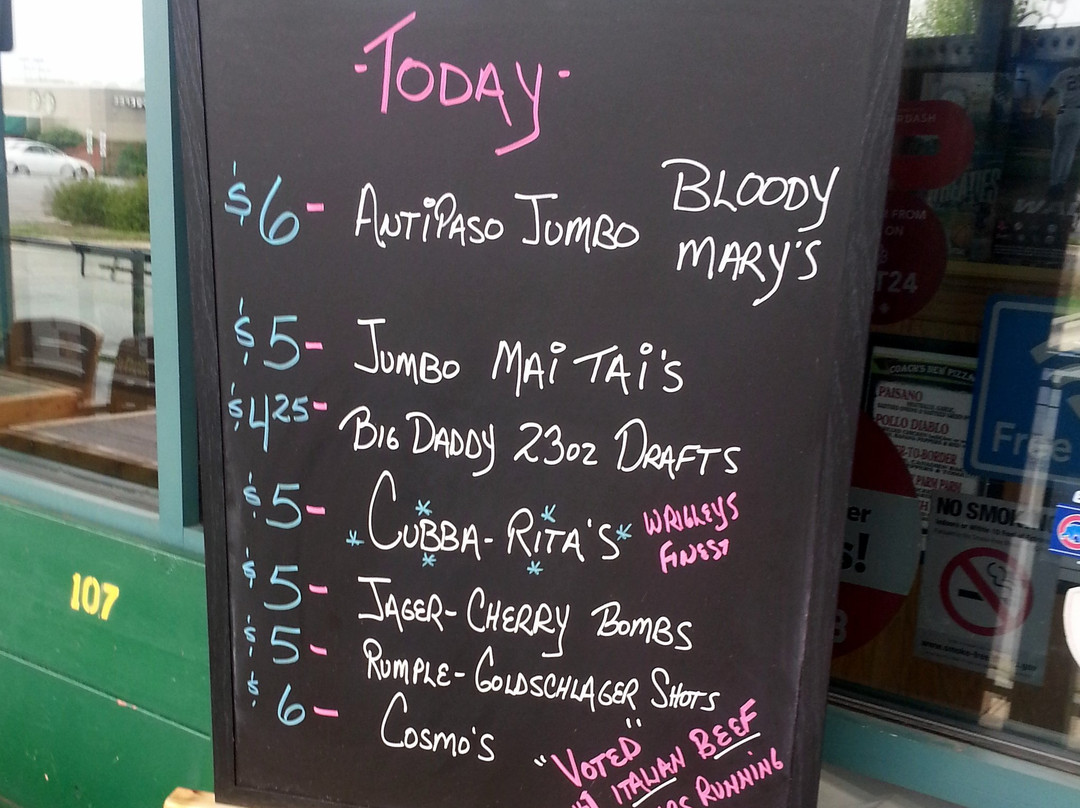 -TODAY-
$6- ANTIPASO JUMBO BLOODY MARY'S
$5- JUMBO MAI TAI'S
$4 25- BIG DADDY 23oz DRAFTS
$5- *CUBBA-RITA'S* WRIGLEYS FINEST
$5- JAGER-CHERRY BOMBS
$5- RUMPLE-GOLDSCHLAGER SHOTS
$6- COSMO'S
"VOTED"
#1 ITALIAN BEEF
RUNNING
107
FROM
ON
T24
COACH'S
PAISANO
POLLO DIABLO
R-TO-BORDER
PARM PARM
Free
er
s!
NO SMOKIN